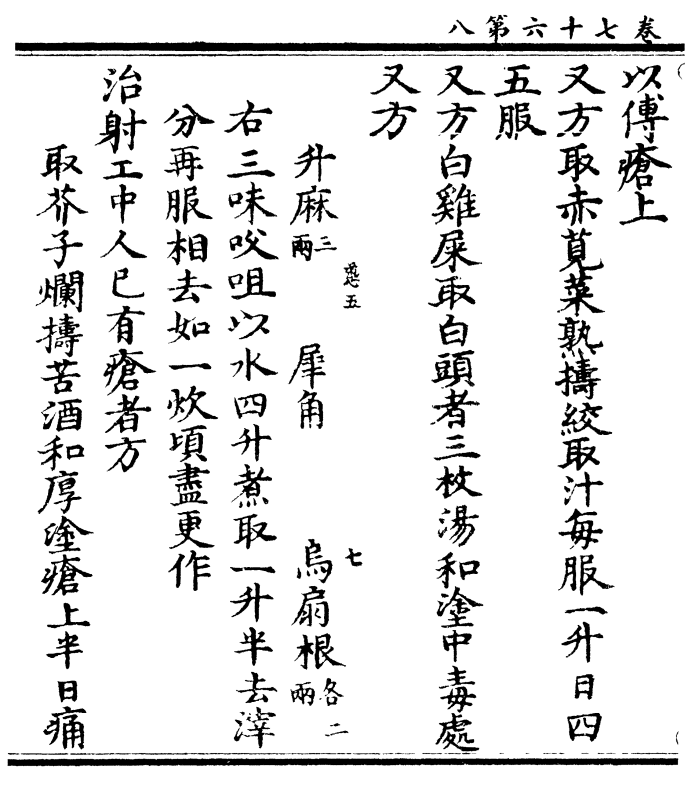 卷七十六第八
以傅瘡上
又方取赤莧菜熟擣絞取汁每服一升日四
五服
又方白雞屎取白頭者三枚湯和塗中毒處
又方
五
七
升麻三兩　犀角　烏扇根各二兩
右三味㕮咀以水四升煮取一升半去滓
分再服相去如一炊頃盡更作
治射工中人已有瘡者方
取芥子爛擣苦酒和厚塗瘡上半日痛